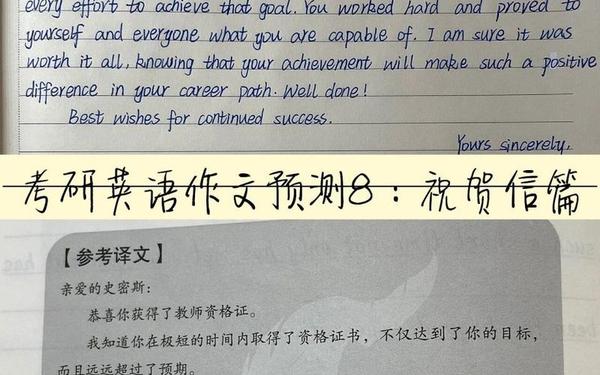 every effort to achieve that goal. You worked hard and proved to
yourself and everyone what you are capable of. I am sure it was
worth it all, knowing that your achievement will make such a positive
difference in your career path. Well done!
Best wishes for continued success.
Yours sincerely,
考研英语作文预测8：祝贺信篇
【参考译文】
亲爱的史密斯：
恭喜你获得了教师资格证。
我知道你在极短的时间内取得了资格证书，不仅达到了你的目标，
而且远远超过了预期。